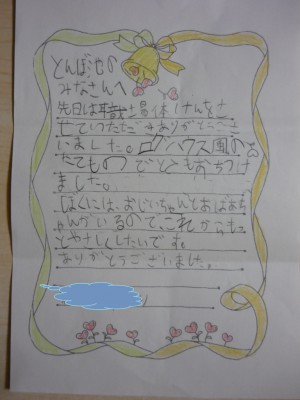 とんぼ池の
みなさんへ
先日は職場体けんをさ
せていただきありがとうござ
いました。ログハウス風の
たてものでとてもおちつけ
ました。
ぼくには、おじいちゃんとおばあち
ゃんがいるので、これからもっ
とやさしくしたいです。
ありがとうございました。